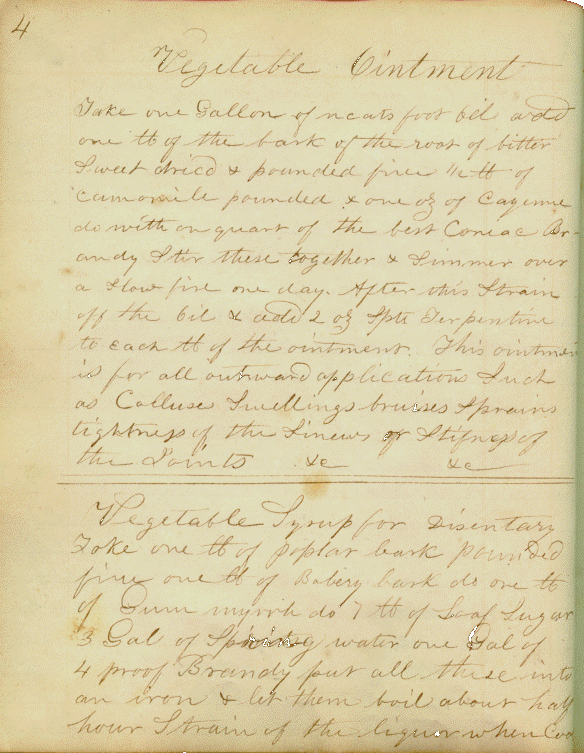 4
Vegetable Ointment
Take one Gallon of neats foot Oil add
one ℔ of the bark of the root of bitter
Sweet dried & pounded fine ½ ℔ of
camomile pounded & one oz of Cayenne
do with on quart of the best Coniac Br-
andy Stir these together & Simmer over
a Slow fire one day. After this Strain
off the Oil & add 2 oz Spts Terpentine
to each ℔ of the ointment. This ointmen
is for all outward applications Such
as Calluse Swellings bruises Sprains
tightness of the Sinews or Stifness of
the Joints &c &c
Vegetable Syrup for Disentary
Take one ℔ of poplar bark pounded
fine one ℔ of Babery bark do one ℔
of Gum myrrh do 7 ℔ of Loaf Sugar
3 Gal of Spring water one Gal of
4 proof Brandy put all these into
an iron & let them boil about half
hour Strain of the liquor when Coo